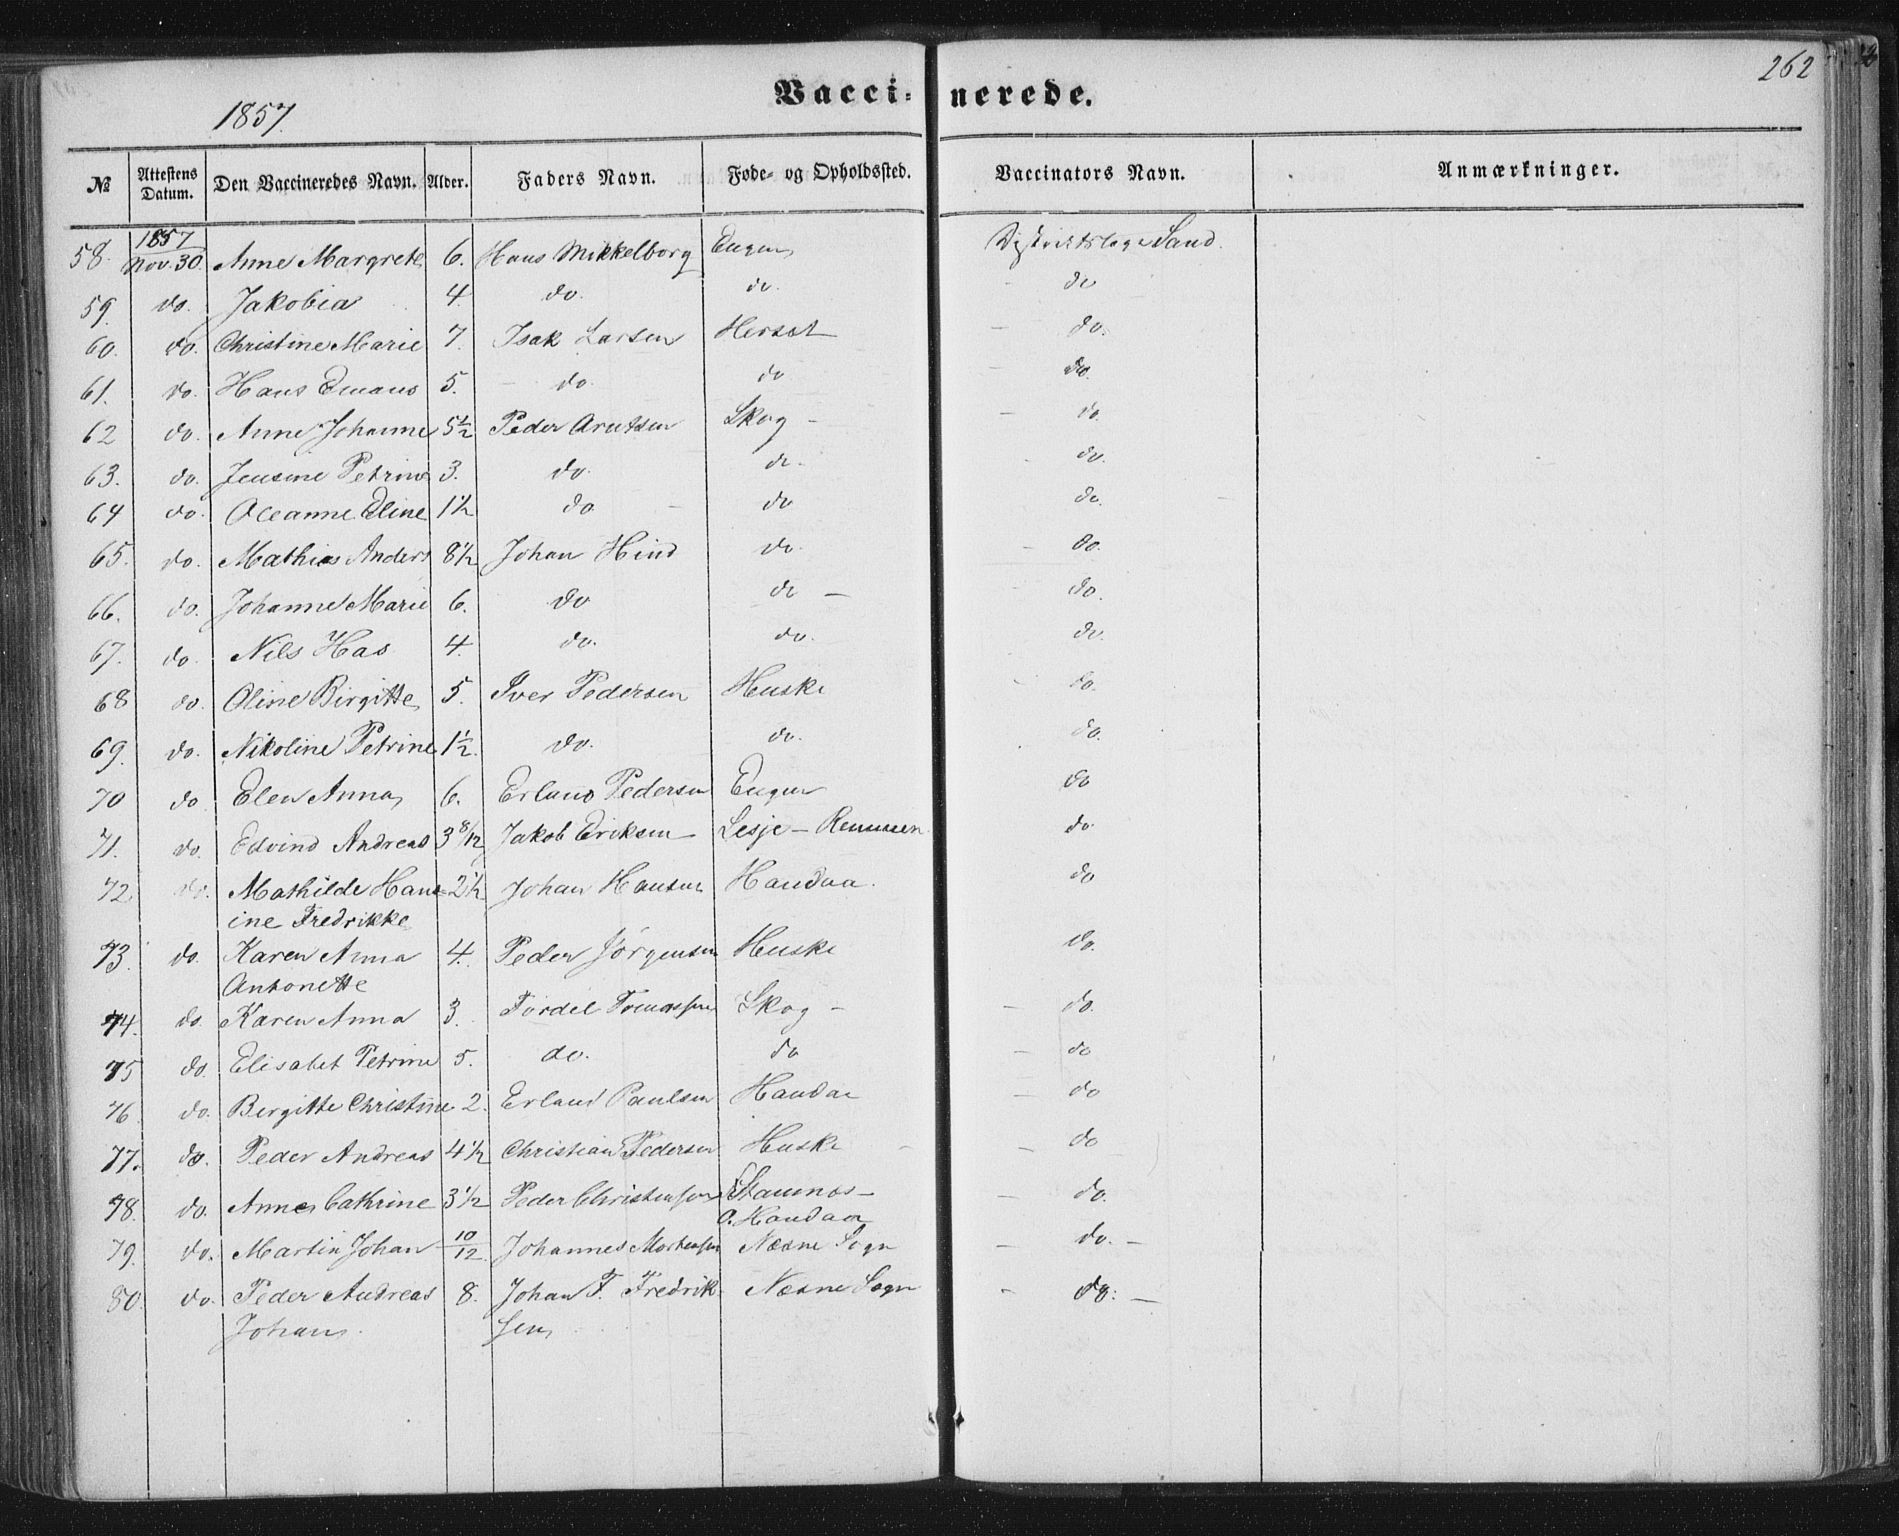 262
Vaccinerede.
1857.
№ Attestens Datum. Den Vaccineredes Navn. Alder. Faders Navn. Føde- og Opholdssted. Vaccinators Navn. Anmærkninger.
58. 1857 Nov. 30. Anne Margrete 6. Hans Mikkelborg Sand.
59. do. Jakobia 4. do. do. do
60. do. Christine Marie 7. Isak Larsen Herset – do.
61. do. Hans Emaus 5. – do. do – do.
62 do. Anne Johanne 5½ Peder Arntsen Skog – – do.
63. do. Jensine Petrine 3. do. do. – do.
64 do. Oleanne Eline 1½ do – do do.
65. do. Mathias Anders 8½ Johan Hind do. – do.
66. do. Johanne Marie 6. do do – – do.
67. do. Nils Has 4. do. do. do.
68 do. Oline Birgitte 5. Iver Pedersen Huske – do.
69. do. Nikoline Petrine 1½. do. do. do.
70 do Elen Anna 6. Erland Pedersen do
71. do. Edvind Andreas 3 8/12 Jakob Eriksen Lesje – do.
72 do. Mathilde Hans= 2½ Johan Hansen Handaa. do
ine Fredrikke
73. do. Karen Anna 4. Peder Jørgensen Huske do.
Antonette
74. do. Karen Anna 3. Tordel Tomassen Skog – – do.
75 do. Elisabet Petrine 5. do. do – do
76 do. Birgitte Christine 2. Erland Paulsen Handaa – do
77. do. Peder Andreas 4½ Christian Pedersen Huske – – do
78. do. Anne Cathrine 3½ Peder Christensen Stamnæs – – do.
O. Handaa
79. do. Martin Johan 10/12 Johannes Mortensen Næsne Sogn – do. –
80. do. Peder Andreas 8. Johan F. Fredrik Næsne Sogn – do. –
Johan sen